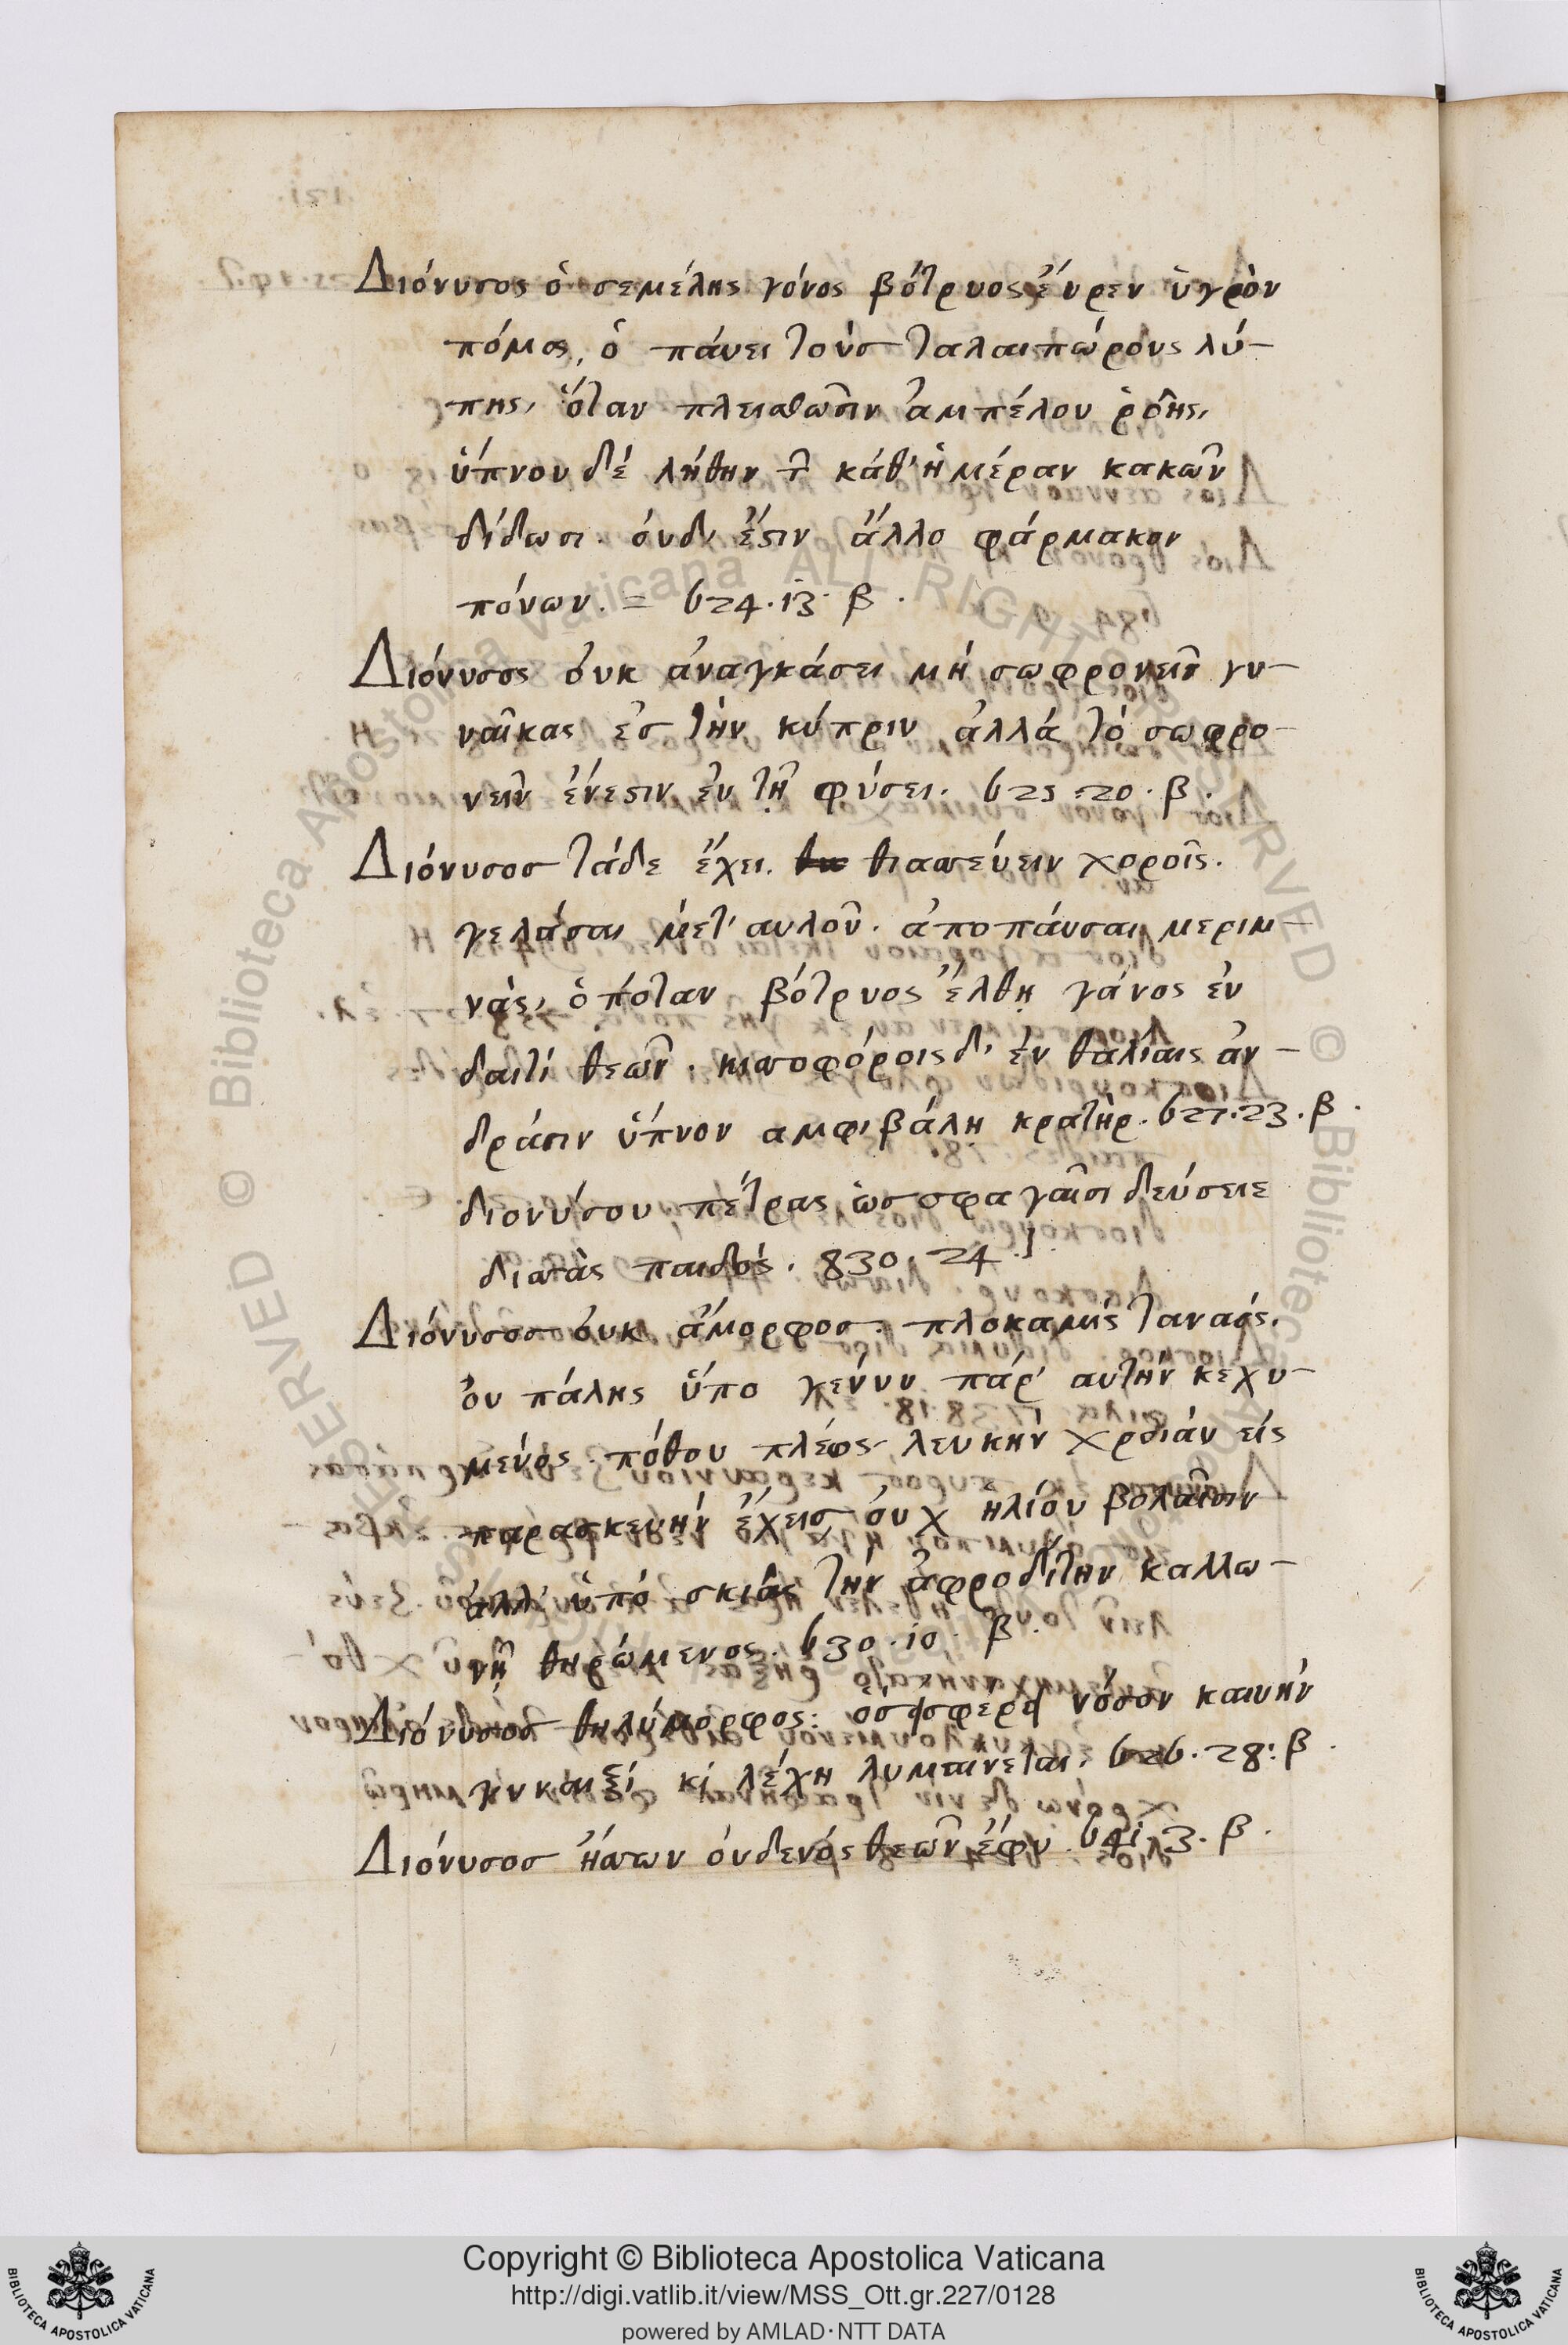 Διόνυσος ὁ σεμέλης γόνος βότρυος ἑύρεν ὑγρὸν
πόμα, ὁ πάυει τοὺσ ταλαιπώρους λύ-
πης, ὅταν πλειαθῶσιν ἀμπέλου ῥοῆς,
ὑπνου δὲ λήθην τ῀ κάθ' ἡμέραν κακῶν
δίδωσι. ὀυδ' ἔϛιν ἄλλο φάρμακον
πόνων. = 624.13 β.
Διόνυσος ὀυκ ἀναγκάσει μὴ σωφρονεῖν γυ-
ναῖκας ἐσ τὴν κύπριν ἀλλὰ τὸ σωφρο-
νεῖν ἔνεϛιν ἐν τῇ φύσει. 625.20.β.
Διόνυσοσ τάδε ἔχει. θιασεύειν χοροῖς.
γελάσαι μὲτ' αυλοῦ. ἀποπάυσαι μεριμ-
νὰς, ὁπόταν βότρυος ἔλθῃ γάνος ἐν
δαιτί θεῶν. κισσοφόροις δ' ἐν θαλίαις ἀν-
δράσιν ὑπνον αμφιβάλῃ κρατὴρ. 627.23.β.
διονύσου πέτρας ὡσ σφαγαῖσι δεύσειε
δισσὰς παιδὸς. 830.24.
Διόνυσοσ ὀυκ ἄμορφοσ. πλοκαμὸς ταναός.
ὀυ πάλης ὕπο γένυν πάρ' αυτὴν κεχυ-
μένος. πόθου πλέως. λευκὴν χροιὰν εἰς
παρασκευὴν ἔχεισ ὀυχ ηλίου βολαῖσιν
ἀλλ' ὑπὸ σκιᾶς τὴν ἀφροδίτην καλλω-
νῇ θηρώμενος. 630.10. β.
Διόνυσοσ θηλύμορφος: ὁσ ἐσφέρει νόσον καινὴν
γυναιξί κὶ λέχη λυμαίνεται. 626.28: β.
Διόνυσοσ ἥσσων ὀυδενὸς θεῶν ἔφυ. 641.3. β.
Copyright © Biblioteca Apostolica Vaticana
http://digi.vatlib.it/view/MSS_Ott.gr.227/0128
powered by AMLAD·NTT DATA